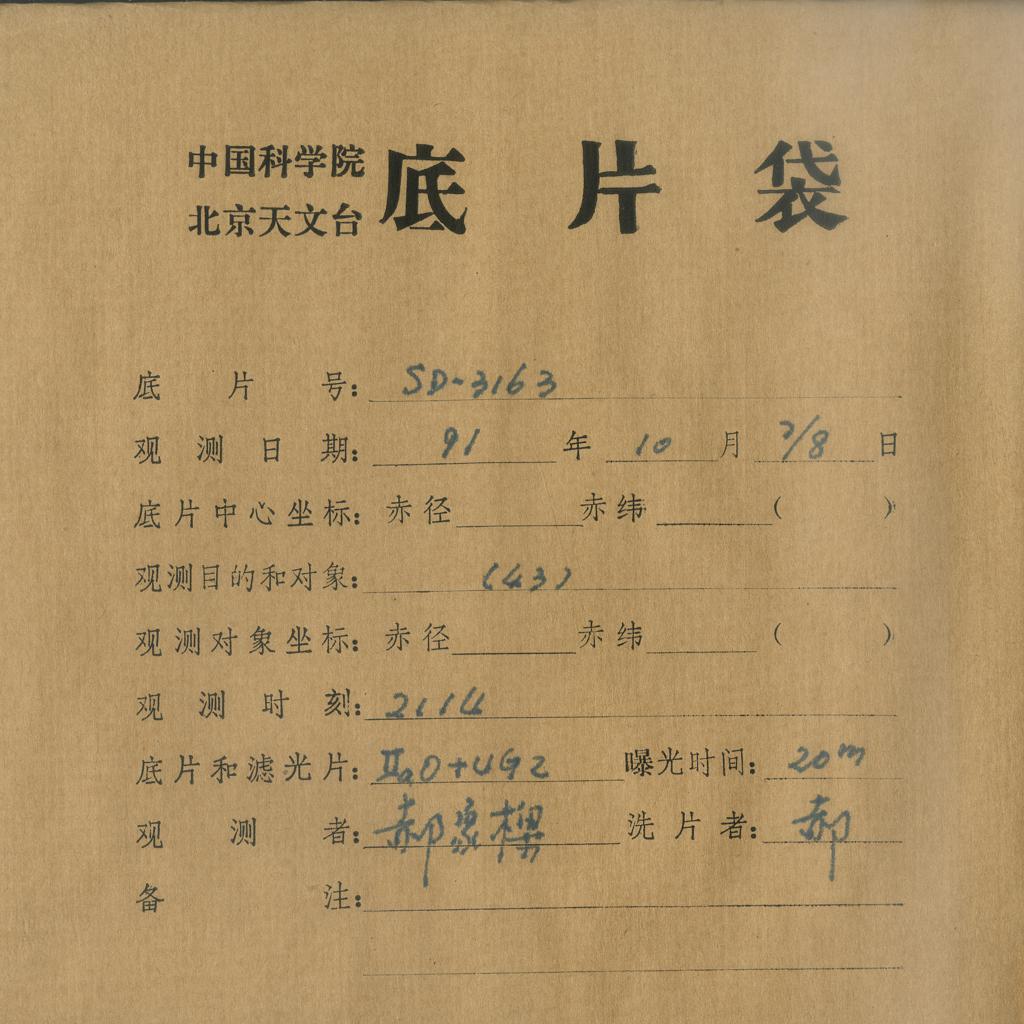 中国科学院
北京天文台
底片袋
底片号：SD-3163
观测日期：91年10月7/8日
底片中心坐标：赤径 赤纬 （ ）
观测目的和对象：(43)
观测对象坐标：赤径 赤纬 （ ）
观测时刻：2114
底片和滤光片：IIaO+UG2 曝光时间：20m
观测者：郝象樑 洗片者：郝
备注：